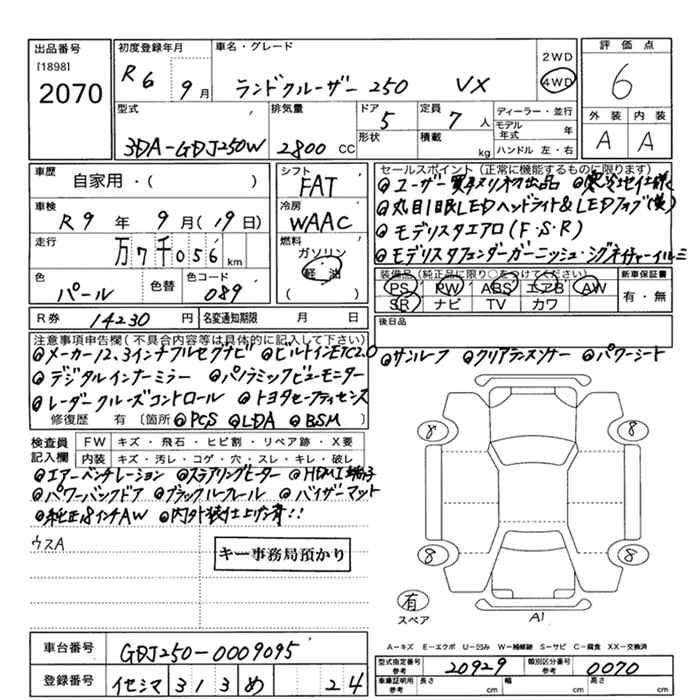 出品番号 初度登録年月 車名・グレード 評価点
[1898] 2WD
2070 R6 9月 ランドクルーザー 250 VX 4WD 6
型式 排気量 ドア 5 定員 7人 ディーラー・並行 外装 内装
モデル年式 年
3DA-GDJ250W 2800 CC 形状 積載 kg ハンドル 左・右 A A
車歴 自家用・( ) シフト FAT セールスポイント(正常に機能するものに限ります)
◎ユーザー買取ワンオーナー出品 ◎寒冷地仕様
車検 R9年9月(19日) 冷房 WAAC ◎丸目1眼LEDヘッドライト&LEDフォグ(黄)
走行 万7千056km 燃料 ガソリン ◎モデリスタエアロ(F・S・R)
軽油 ◎モデリスタフェンダーガーニッシュ・シグネチャーイルミ
( )
色 パール 色替 色コード 089 装備品(純正品に限り○をつけてください) 新車保証書
PS PW ABS エアB AW 有・無
SR ナビ TV カワ
R券 14230円 名変通知期限 月 日 後日品
注意事項申告欄(不具合内容等は具体的に記入して下さい)
◎メーカー12.3インチフルセグナビ ◎ビルトインETC2.0 ◎サンルーフ ◎クリアランスソナー ◎パワーシート
◎デジタルインナーミラー ◎パノラミックビューモニター
◎レーダークルーズコントロール ◎トヨタセーフティセンス
修復歴 有 [箇所 ◎PCS ◎LDA ◎BSM ]
検査員記入欄 FW キズ・飛石・ヒビ割・リペア跡・X要
内装 キズ・汚レ・コゲ・穴・スレ・キレ・破レ
◎エアーベンチレーション ◎ステアリングヒーター ◎HDMI端子
◎パワーバックドア ◎ブラックルーフレール ◎バイザーマット
◎純正18インチAW ◎内外装仕上げ済!!
ウスA
キー事務局預かり
8 8
8 8
有
スペア
A1
A−キズ E−エクボ U−凹み W−補修跡 S−サビ C−腐食 XX−交換済
車台番号 GDJ250-0009095 型式指定番号 参考 20929 類別区分番号 参考 0070
登録番号 イセシマ 313 め 24 車庫証明用 参考 長さ cm 幅 cm 高さ cm